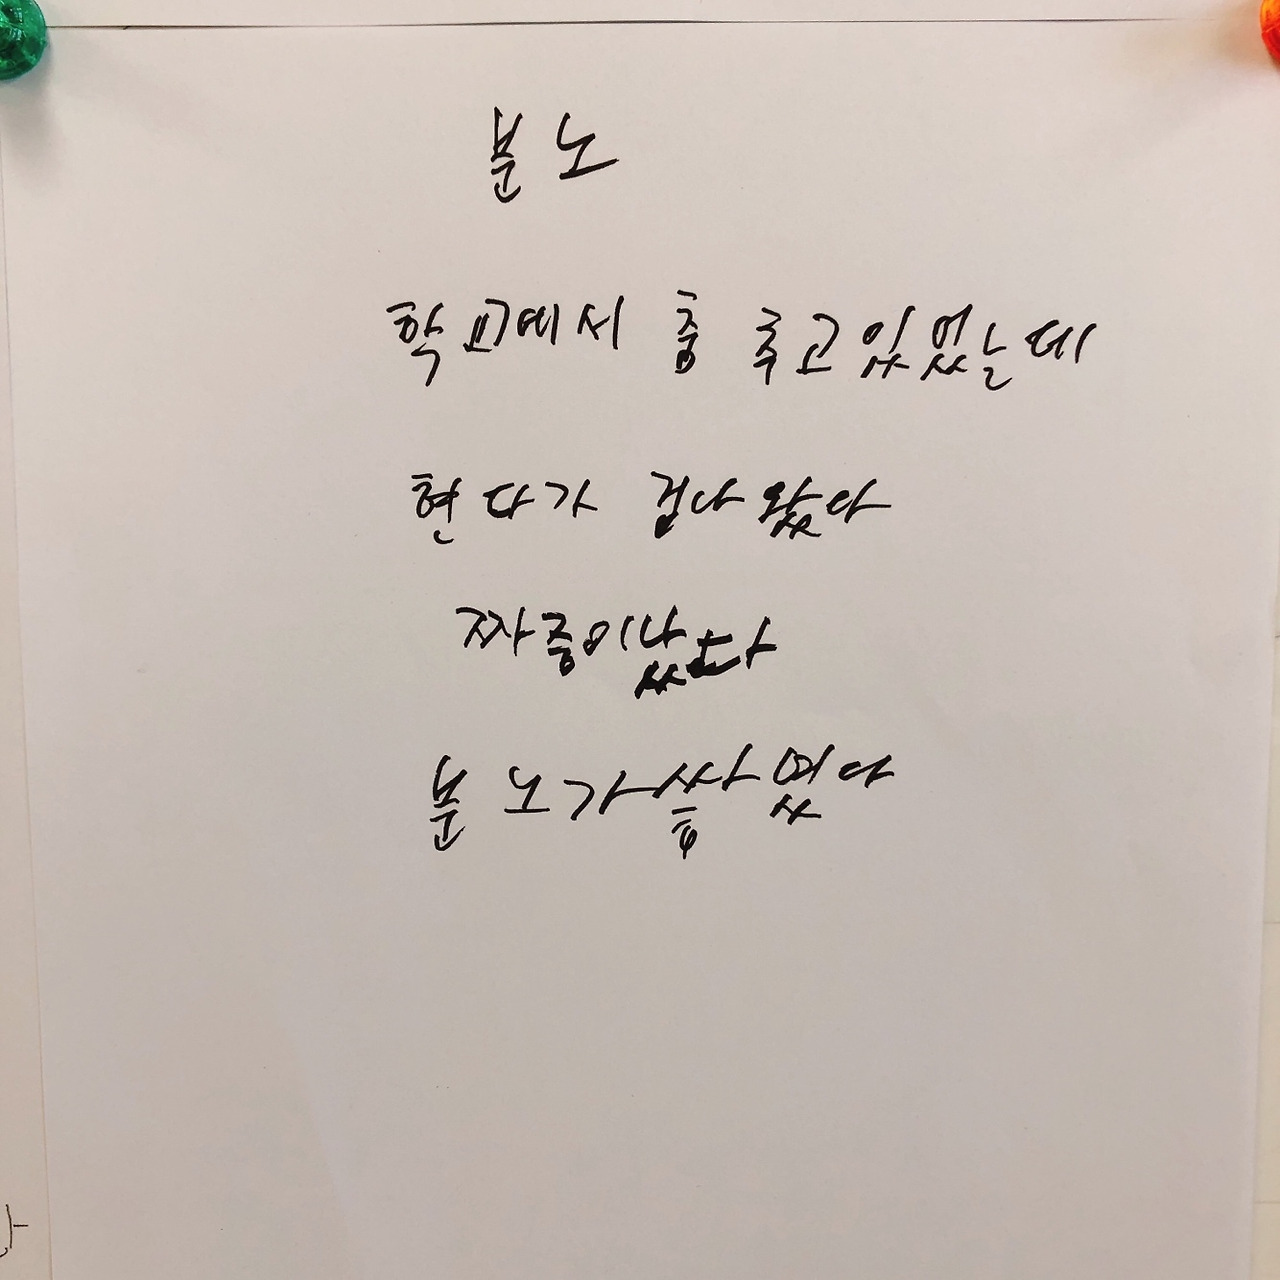 분노
학교에서 춤 추고있었는데
현다가 겁나왔다
짜증이났다
분노가 쌓였다